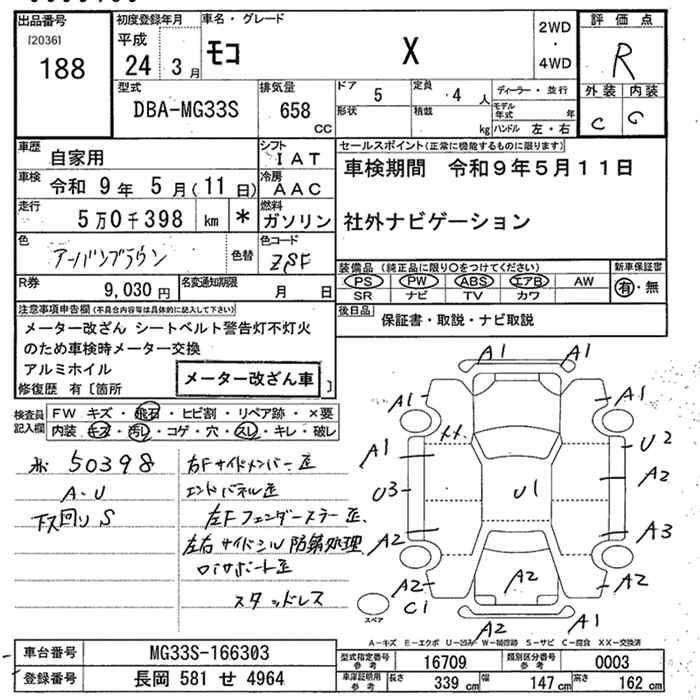 出品番号 初度登録年月 車名・グレード 2WD ・ 4WD 評価点
[2036]
188
平成 24 3月
モコ X
R
型式 DBA-MG33S
排気量 658 CC
ドア 5 定員 4 人 ディーラー・並行
形状 積載 kg モデル年式 年 ハンドル 左・右
外装 内装
C C
車歴 自家用
シフト IAT
車検 令和 9年 5月(11日)
冷房 AAC
走行 5万0千398 km *
燃料 ガソリン
色 アーバンブラウン 色替
色コード ZSF
R券 9,030円 名変通知期限 月 日
セールスポイント(正常に機能するものに限ります)
車検期間 令和9年5月11日
社外ナビゲーション
装備品(純正品に限り〇をつけてください) 新車保証書
PS PW ABS エアB AW 有・無
SR ナビ TV カワ
後日品 保証書・取説・ナビ取説
注意事項申告欄(不具合内容等は具体的に記入して下さい)
メーター改ざん シートベルト警告灯不灯火
のため車検時メーター交換
アルミホイル
修復歴 有〔箇所 〕
メーター改ざん車
検査員記入欄 FW キズ・飛石・ヒビ割・リペア跡・×要
内装 キズ・汚レ・コゲ・穴・スレ・キレ・破レ
50398
A・U
下ス回リS
右Fサイドメンバー歪
エンドパネル歪
左Fフェンダーステー歪、
左右サイドシル防錆処理
ロアサポート歪
スタッドレス
A1 A1
A1 A1
A1 U2
U3 U1 A2
A2 A3
A2 A2 A2
C1
A2 A1
スペア
A-キズ E-エクボ U-凹み W-補修跡 S-サビ C-腐食 XX-交換済
車台番号 MG33S-166303
登録番号 長岡 581 せ 4964
型式指定番号 参考 16709 類別区分番号 参考 0003
車庫証明用 参考 長さ 339 cm 幅 147 cm 高さ 162 cm